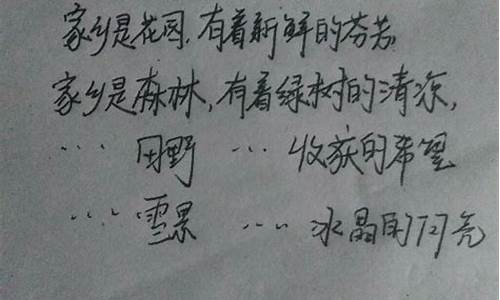 家乡是花园,有着新鲜的芬芳
家乡是森林,有着绿树的清凉,
… 田野 … 收获的希望
… 雪景 … 水晶的闪亮